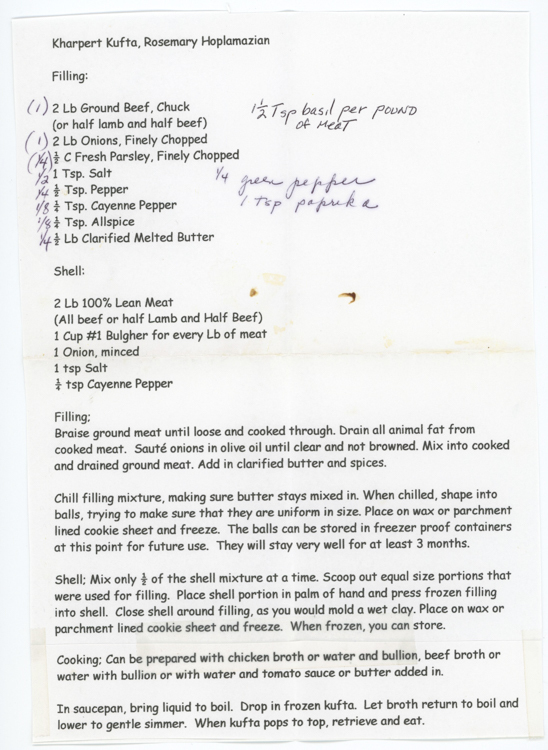 Kharpert Kufta, Rosemary Hoplamazian
Filling:
(1) 2 Lb Ground Beef, Chuck
1 1/2 Tsp basil per POUND
(or half lamb and half beef)
OF MEAT
(1) 2 Lb Onions, Finely Chopped
(1/4) ½ C Fresh Parsley, Finely Chopped
1/2 1 Tsp. Salt
1/4 green pepper
1/4 ½ Tsp. Pepper
1/8 ¼ Tsp. Cayenne Pepper
1 Tsp paprika
1/8 ¼ Tsp. Allspice
1/4 ½ Lb Clarified Melted Butter
Shell:
2 Lb 100% Lean Meat
(All beef or half Lamb and Half Beef)
1 Cup #1 Bulgher for every Lb of meat
1 Onion, minced
1 tsp Salt
¼ tsp Cayenne Pepper
Filling;
Braise ground meat until loose and cooked through. Drain all animal fat from
cooked meat. Sauté onions in olive oil until clear and not browned. Mix into cooked
and drained ground meat. Add in clarified butter and spices.
Chill filling mixture, making sure butter stays mixed in. When chilled, shape into
balls, trying to make sure that they are uniform in size. Place on wax or parchment
lined cookie sheet and freeze. The balls can be stored in freezer proof containers
at this point for future use. They will stay very well for at least 3 months.
Shell; Mix only ½ of the shell mixture at a time. Scoop out equal size portions that
were used for filling. Place shell portion in palm of hand and press frozen filling
into shell. Close shell around filling, as you would mold a wet clay. Place on wax or
parchment lined cookie sheet and freeze. When frozen, you can store.
Cooking; Can be prepared with chicken broth or water and bullion, beef broth or
water with bullion or with water and tomato sauce or butter added in.
In saucepan, bring liquid to boil. Drop in frozen kufta. Let broth return to boil and
lower to gentle simmer. When kufta pops to top, retrieve and eat.